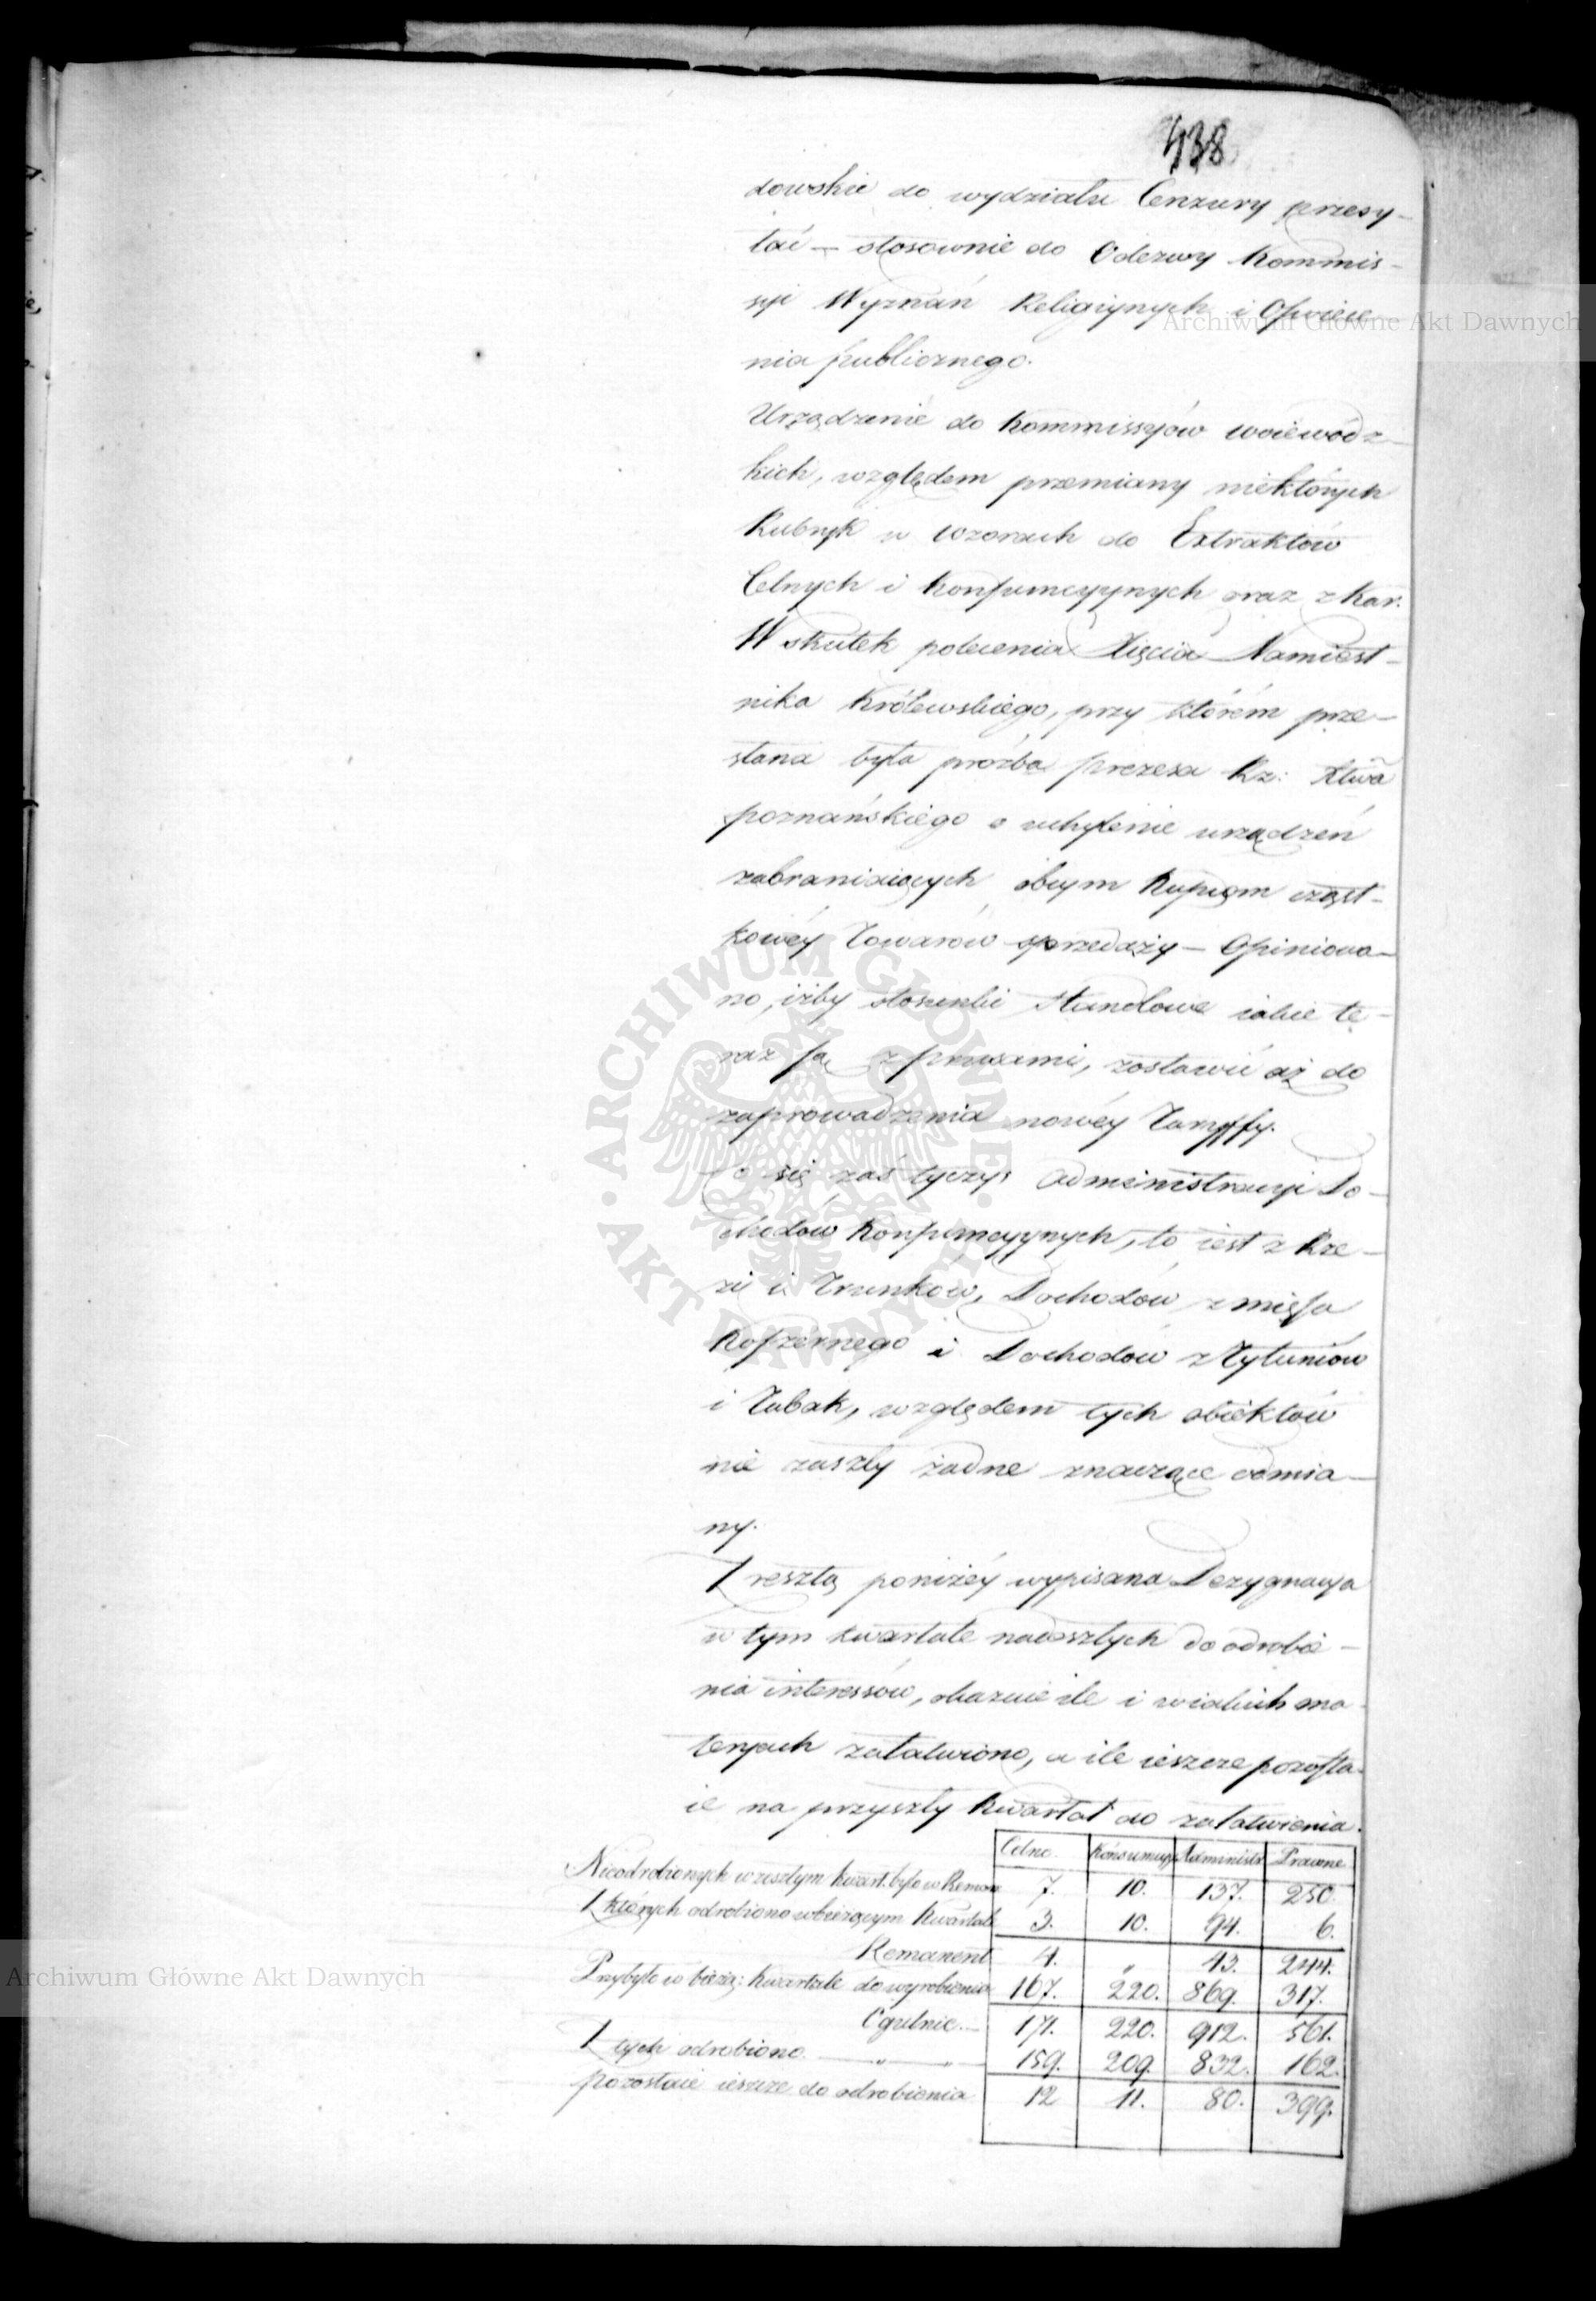 438
dowskie do wydziału Cenzury przesy-
łać – stosownie do Odezwy Kommis-
syi Wyznań Religiynych i Oświece
nia publicznego.
Urządzenie do Kommissyów woiewódz-
kich, względem przemiany niektórych
Rubryk w wzorach do Extraktów
Celnych i Konsumcyynych oraz z Kar.
W skutek polecenia Xięcia Namiest-
nika Królewskiego, przy którém prze-
słana była proźba prezesa Rz:
poznańskiego o uchylenie urządzeń
zabraniaiących obcym Kupcom cząst-
kowéy Towarów sprzedaży – Opiniowa-
no, iżby stosunki Handlowe iakie te-
raz są z prusami, zostawić aż do
zaprowadzenia nowéy Taryffy.
Co się zaś tyczy Administracyi Do-
chodów Konsumcyynych, to iest z Rze-
zi i Trunków, Dochodów z mięsa
Koszernego i Dochodów z Tytuniów
i Tabak, względem tych obiektów
nie zaszły żadne znaczące odmia-
ny.
Z resztą poniżéy wypisana Dezygnacya
w tym kwartale nadeszłych do odrobie-
nia interessów, okazuie ile i w iakich ma-
teryach załatwiono, a ile ieszcze pozosta-
ie na przyszły Kwartał do załatwienia.
Celne. Konsumcyy Administr. Prawne.
Nieodrobionych w zeszłym Kwart. było w Reman 7. 10. 137. 250.
Z których odrobiono w bieżącym Kwartale 3. 10. 94. 6.
Remanent 4. „ 43. 244.
Przybyło w bieżą: Kwartale do wyrobienia 167. 220. 869. 317.
Ogulnie. 171. 220. 912. 561.
Z tych odrobiono. „ 159. 209. 832. 162.
pozostaie ieszcze do odrobienia 12 11. 80. 399.
Archiwum Główne Akt Dawnych
ARCHIWUM GŁÓWNE AKT DAWNYCH
Archiwum Główne Akt Dawnych